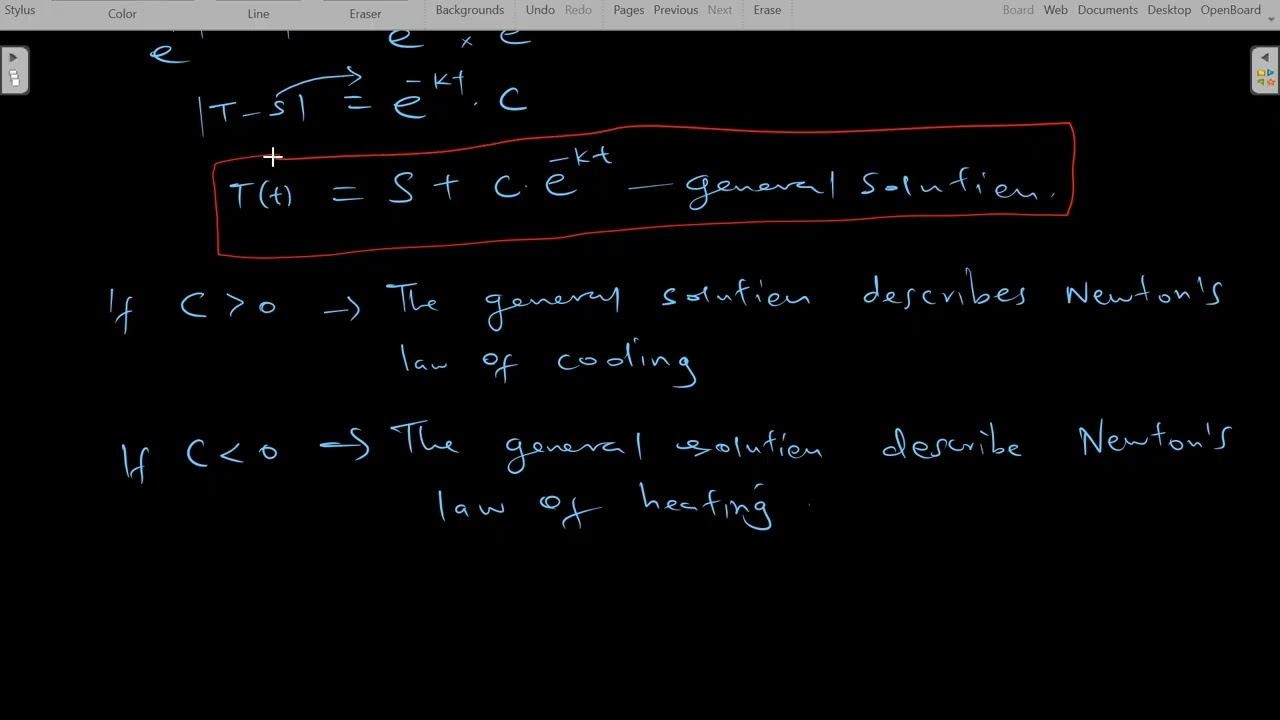 Stylus Color Line Eraser Backgrounds Undo Redo Pages Previous Next Erase Board Web Documents Desktop OpenBoard
e e × e
|T - S| = e^-kt . C
T(t) = S + C. e^-kt — general solution.
If C > 0 → The general solution describes Newton's
law of cooling
If C < 0 → The general solution describe Newton's
law of heating